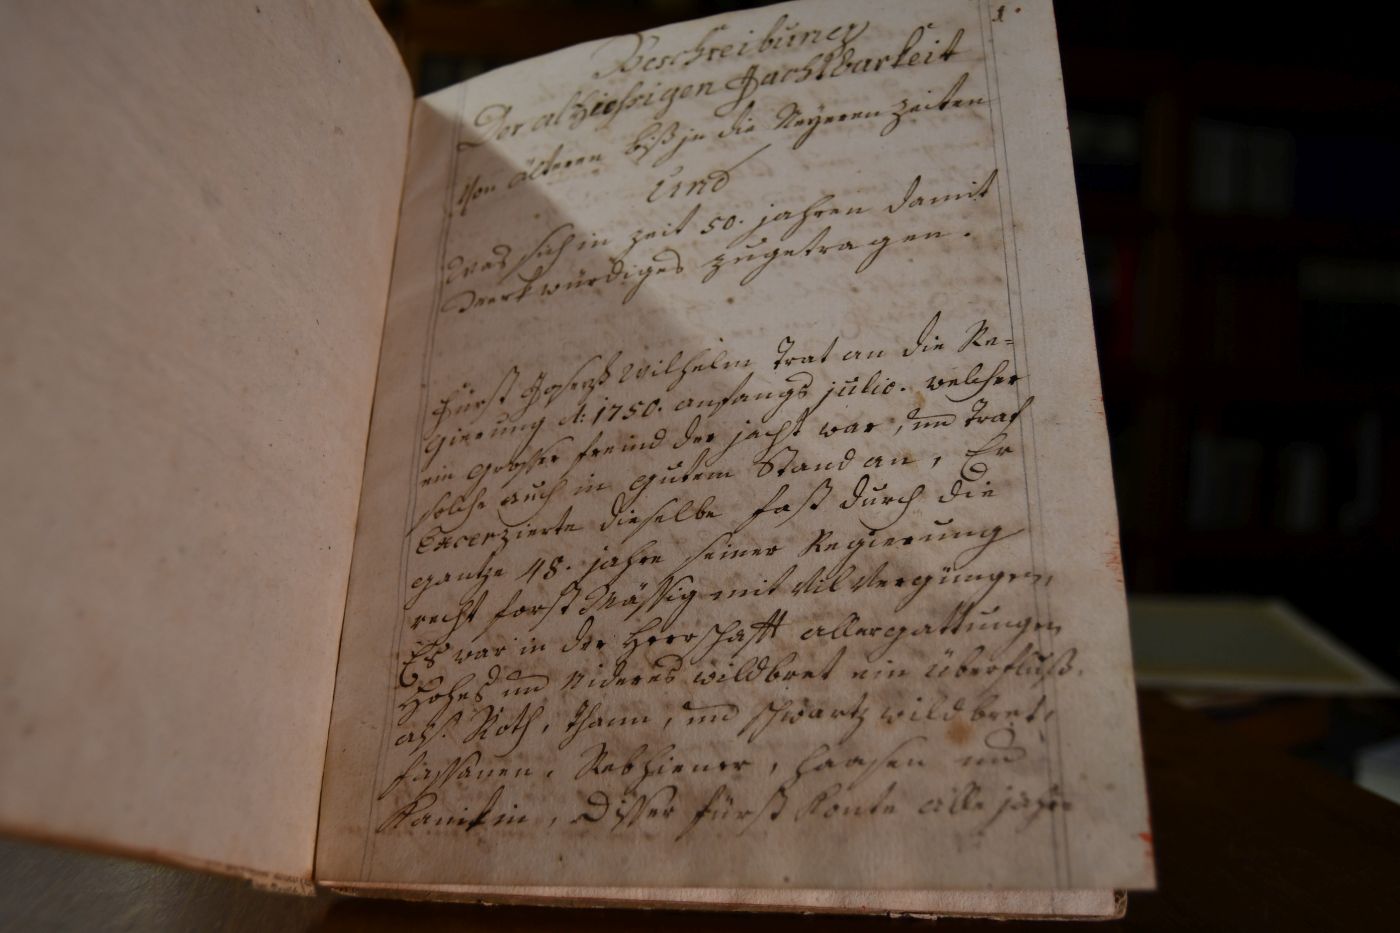 1.
Beschreibung
Der alhiesigen Jachtbarkeit
Von älteren biß in die Neyeren zeiten
Und
Was sich in zeit 50. jahren damit
Merkwürdiges zugetragen.
Fürst Joseph Wilhelm Trat an die Re=
gierung A: 1750. anfangs julio. welcher
ein grosser freind der jacht war, und Traf
solche auch in gutem Stand an, Er
Excerzierte dieselbe fast durch die
gantze 48. jahre seiner Regierung
recht forst Mässig mit Vil Vergnügen,
Es war in der Herrschafft allergattungen
Hohes und Nideres wildbret ein überfluß.
alß. Roth, Thann, und schwartz wildbret,
fassanen, Rebhiener, Haasen und
Kanikin, Disser fürst konte alle jahre